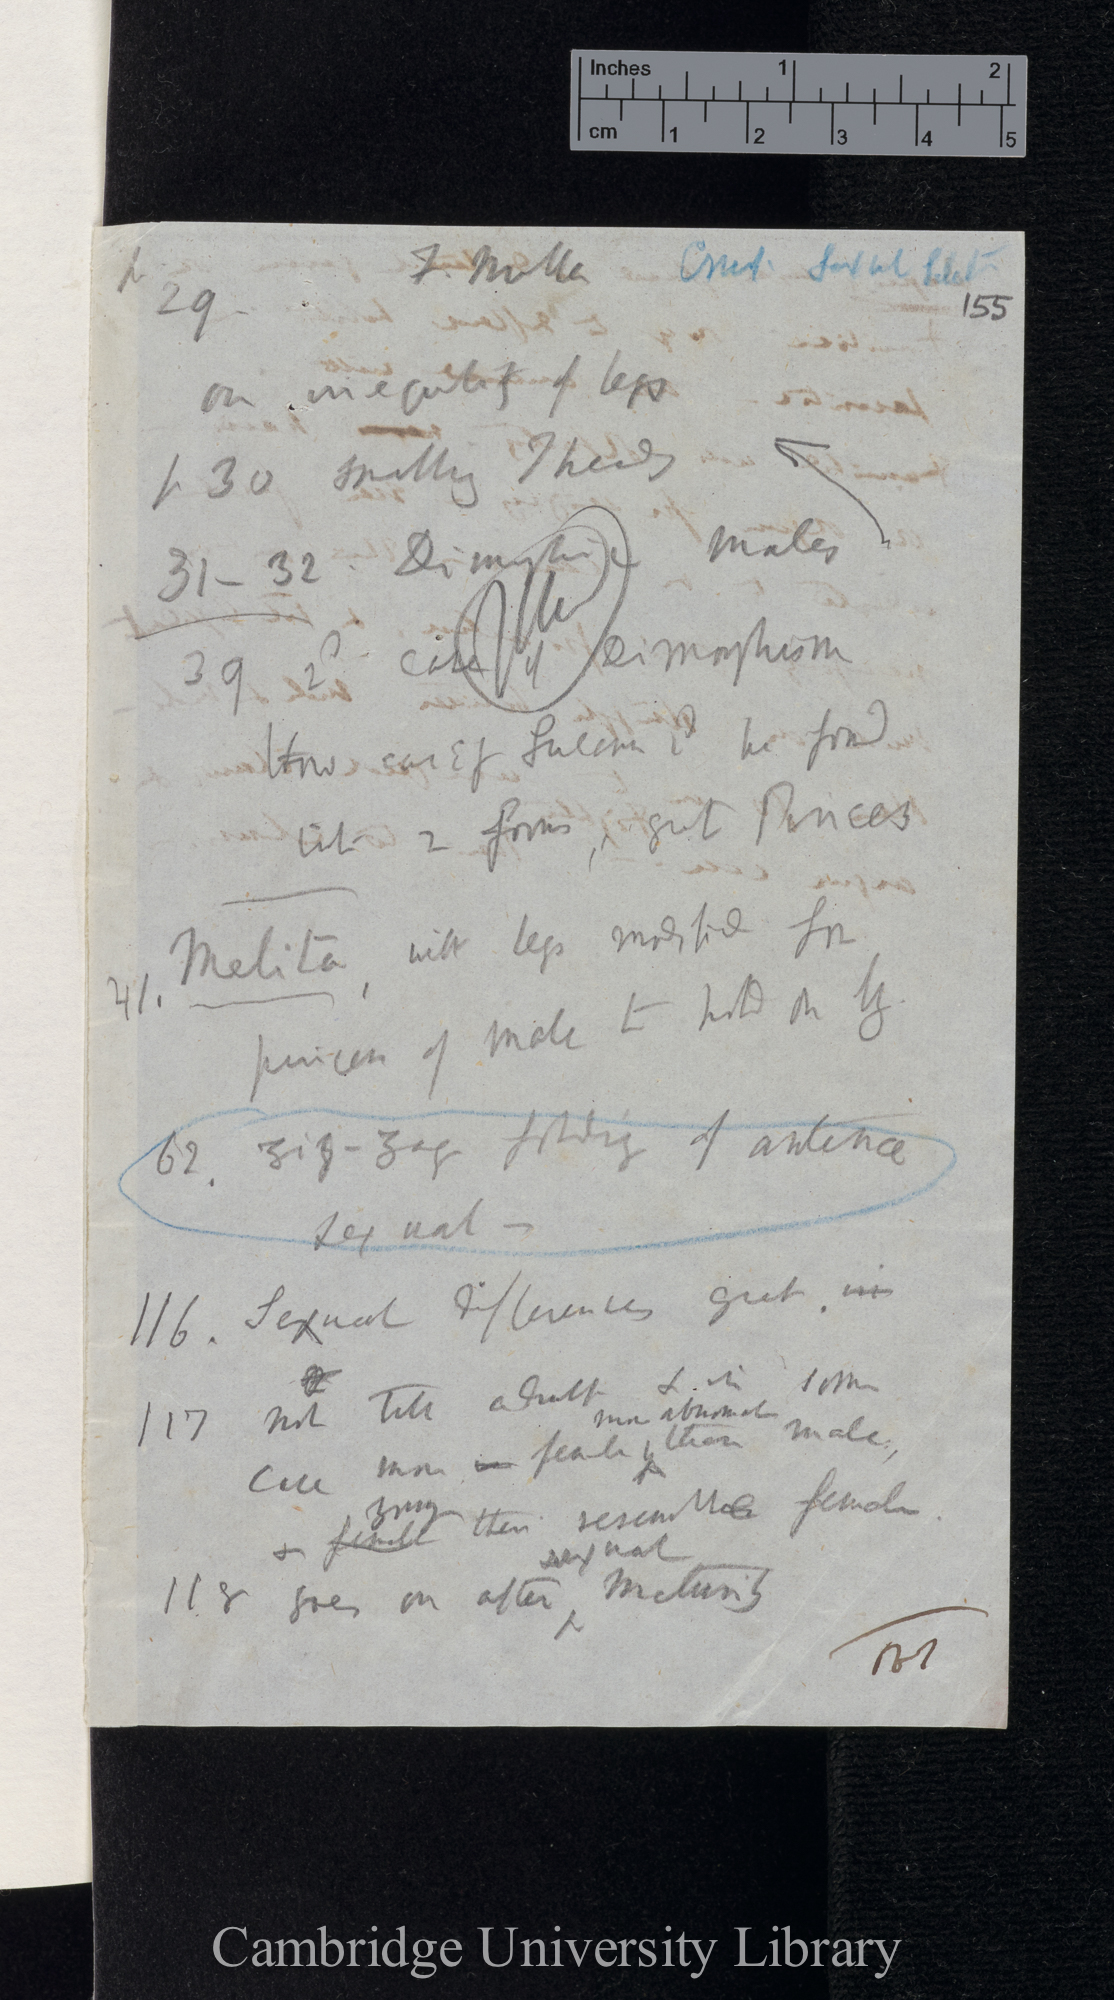 Inches 1 2
cm 1 2 3 4 5
p F Muller Crust. Sexual Select
29. 155
on irregularity of legs
p 30 smelling Threads
31–32. Dimorphic males
39 2d case of dimorphism
How easily Sulcum be found
with 2 forms, great Pincers
41. Melita, with legs modified for
pincers of male to hold on by.
62. zig-zag folding of antennæ
sexual –
116. Sexual differences great. in
117 not till adult & in some
more abnormal
case more female, than male,
young
& female then resemble female.
sexual
118 goes on after maturity